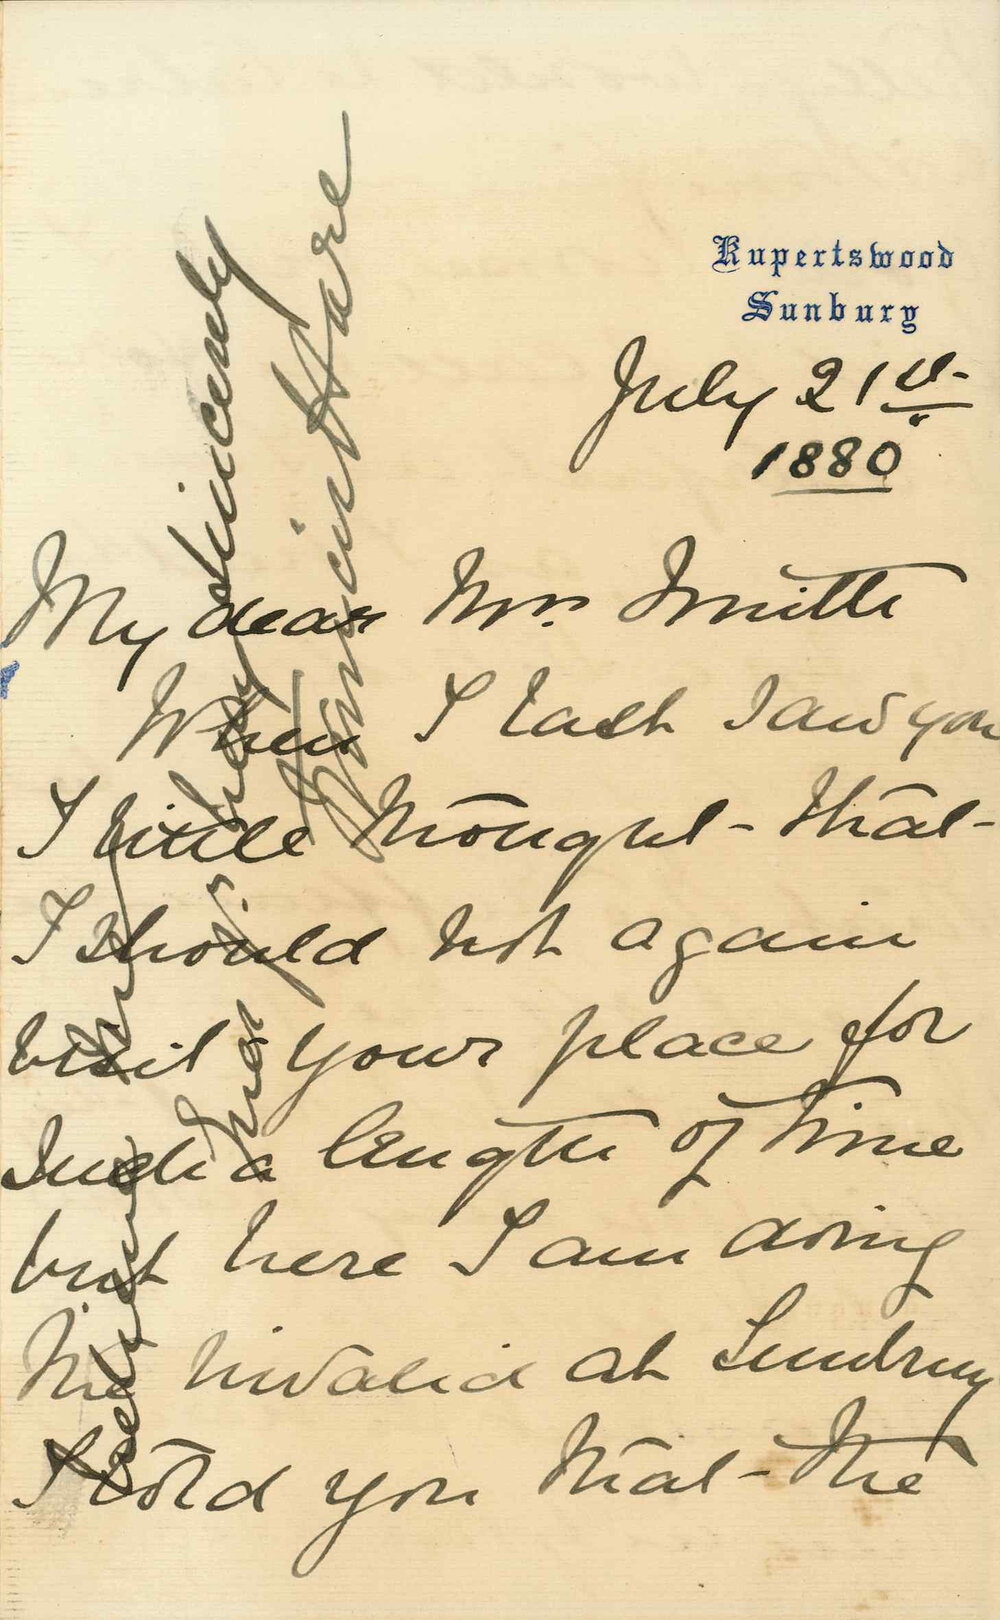 Rupertswood
Sunbury
July 21st
1880
My dear Mrs. Smith
When I last saw you
I little thought that
I should not again
visit your place for
such a length of time
but here I am doing
the invalid at Sunbury
I told you that the
sincerely
Hare